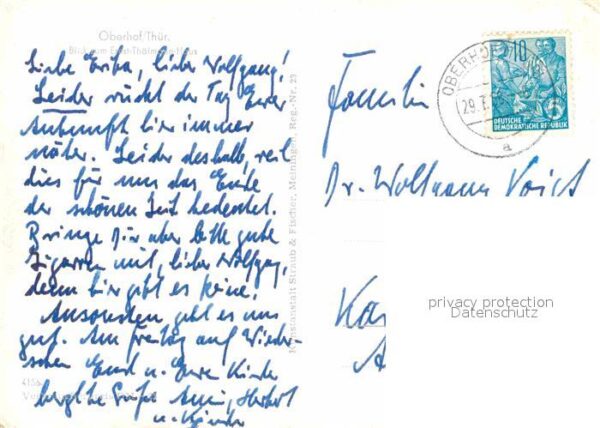 Oberhof/Thür.
Blick zum Ernst-Thälmann-Haus
Liebe Erika, lieber Wolfgang!
Leider rückt der Tag Eurer
Ankunft hier immer
näher. Leider deshalb, weil
dies für uns das Ende
der schönen Zeit bedeutet.
Bringe Dir aber bitte gute
Zigarren mit, lieber Wolfgang,
denn hier gibt es keine.
Ansonsten geht es uns
gut. Am Freitag auf Wieder-
sehen Euch u. Eure Kinder
herzliche Grüße Anni, Herbert
u. Kinder
Kunstanstalt Straub & Fischer, Meiningen Reg.-Nr. 23
OBERHOF
29.7
a
10
5
DEUTSCHE
DEMOKRATISCHE REPUBLIK
Familie
Dr. Wolfgang Voigt
privacy protection
Datenschutz